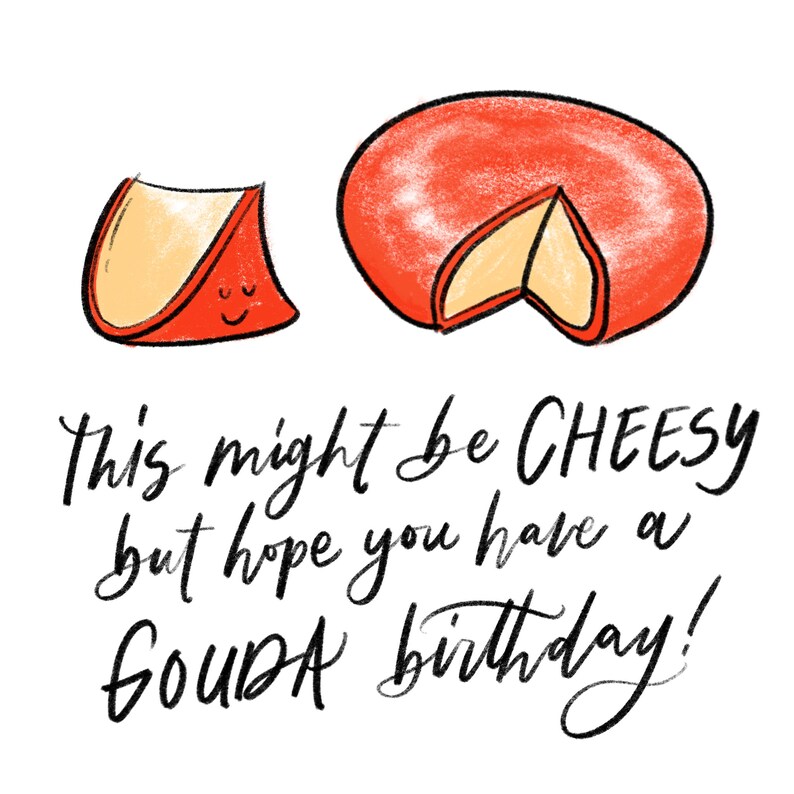 This might be CHEESY
but hope you have a
GOUDA birthday!